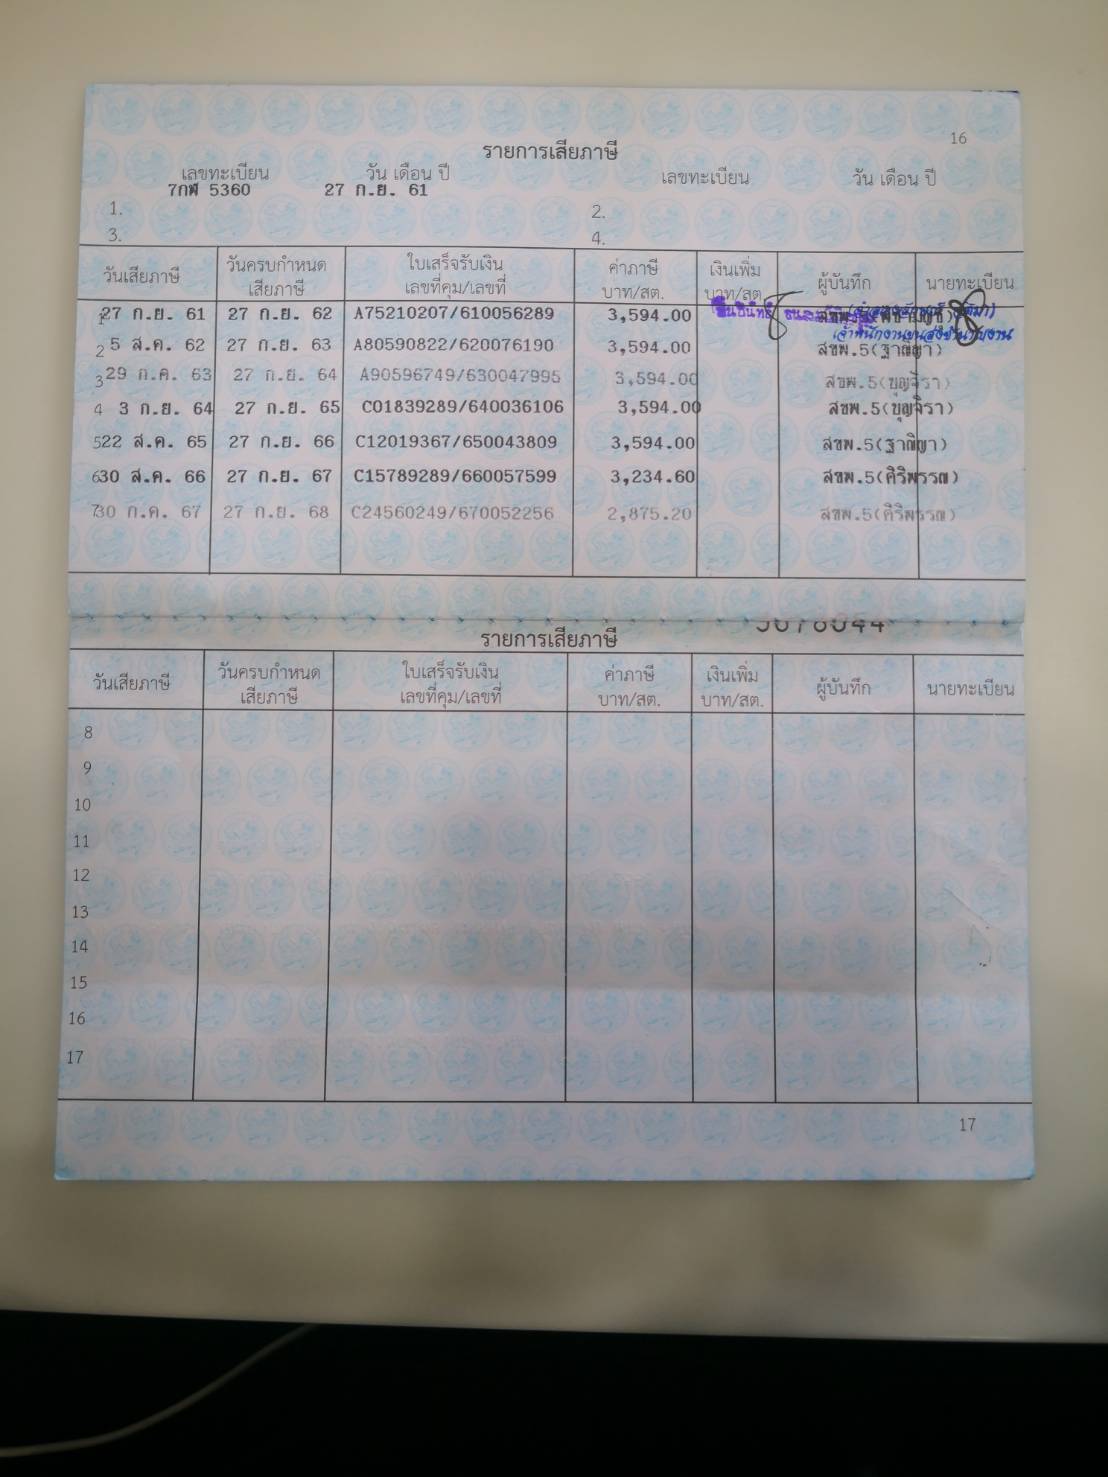 16
รายการเสียภาษี
เลขทะเบียน วัน เดือน ปี เลขทะเบียน วัน เดือน ปี
7กฬ 5360 27 ก.ย. 61
1. 2.
3. 4.
วันเสียภาษี วันครบกำหนดเสียภาษี ใบเสร็จรับเงิน เลขที่คุม/เลขที่ ค่าภาษี บาท/สต. เงินเพิ่ม บาท/สต. ผู้บันทึก นายทะเบียน
1 27 ก.ย. 61 27 ก.ย. 62 A75210207/610056289 3,594.00
เจ้าพนักงานขนส่งชำนาญงาน
2 5 ส.ค. 62 27 ก.ย. 63 A80590822/620076190 3,594.00 สขพ.5(ฐาณิญา)
3 29 ก.ค. 63 27 ก.ย. 64 A90596749/630047995 3,594.00 สขพ.5(บุญจิรา)
4 3 ก.ย. 64 27 ก.ย. 65 C01839289/640036106 3,594.00 สขพ.5(บุญจิรา)
5 22 ส.ค. 65 27 ก.ย. 66 C12019367/650043809 3,594.00 สขพ.5(ฐาณิญา)
6 30 ส.ค. 66 27 ก.ย. 67 C15789289/660057599 3,234.60 สขพ.5(ศิริพรรณ)
7 30 ก.ค. 67 27 ก.ย. 68 C24560249/670052256 2,875.20 สขพ.5(ศิริพรรณ)
รายการเสียภาษี
วันเสียภาษี วันครบกำหนดเสียภาษี ใบเสร็จรับเงิน เลขที่คุม/เลขที่ ค่าภาษี บาท/สต. เงินเพิ่ม บาท/สต. ผู้บันทึก นายทะเบียน
8
9
10
11
12
13
14
15
16
17
17